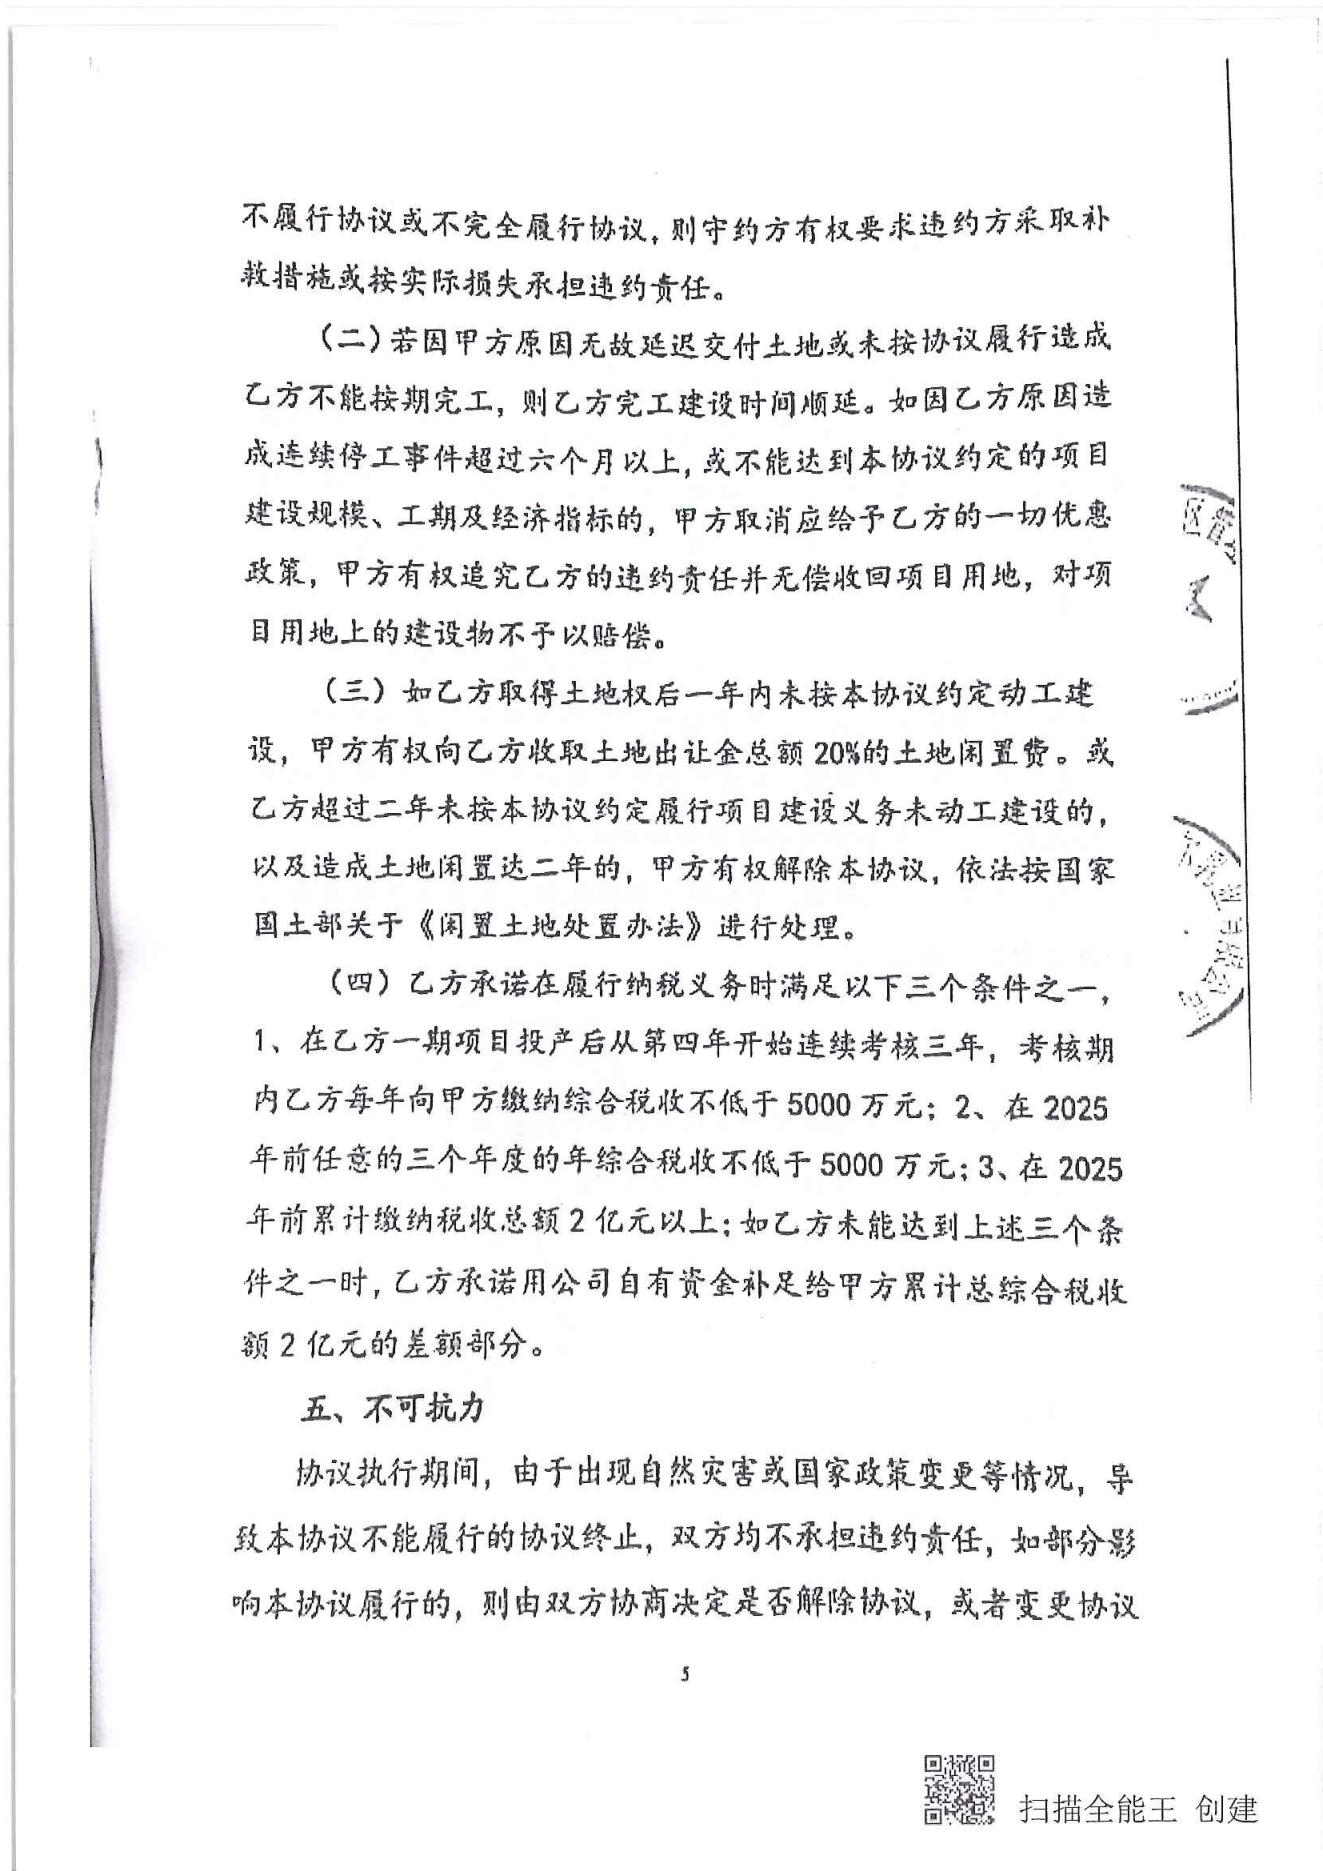 不履行协议或不完全履行协议，则守约方有权要求违约方采取补
救措施或按实际损失承担违约责任。
（二）若因甲方原因无故延迟交付土地或未按协议履行造成
乙方不能按期完工，则乙方完工建设时间顺延。如因乙方原因造
成连续停工事件超过六个月以上，或不能达到本协议约定的项目
建设规模、工期及经济指标的，甲方取消应给予乙方的一切优惠
政策，甲方有权追究乙方的违约责任并无偿收回项目用地，对项
目用地上的建设物不予以赔偿。
（三）如乙方取得土地权后一年内未按本协议约定动工建
设，甲方有权向乙方收取土地出让金总额20%的土地闲置费。或
乙方超过二年未按本协议约定履行项目建设义务未动工建设的，
以及造成土地闲置达二年的，甲方有权解除本协议，依法按国家
国土部关于《闲置土地处置办法》进行处理。
（四）乙方承诺在履行纳税义务时满足以下三个条件之一，
1、在乙方一期项目投产后从第四年开始连续考核三年，考核期
内乙方每年向甲方缴纳综合税收不低于5000万元；2、在2025
年前任意的三个年度的年综合税收不低于5000万元；3、在2025
年前累计缴纳税收总额2亿元以上；如乙方未能达到上述三个条
件之一时，乙方承诺用公司自有资金补足给甲方累计总综合税收
额2亿元的差额部分。
五、不可抗力
协议执行期间，由于出现自然灾害或国家政策变更等情况，导
致本协议不能履行的协议终止，双方均不承担违约责任，如部分影
响本协议履行的，则由双方协商决定是否解除协议，或者变更协议
5
区管
公司
扫描全能王 创建